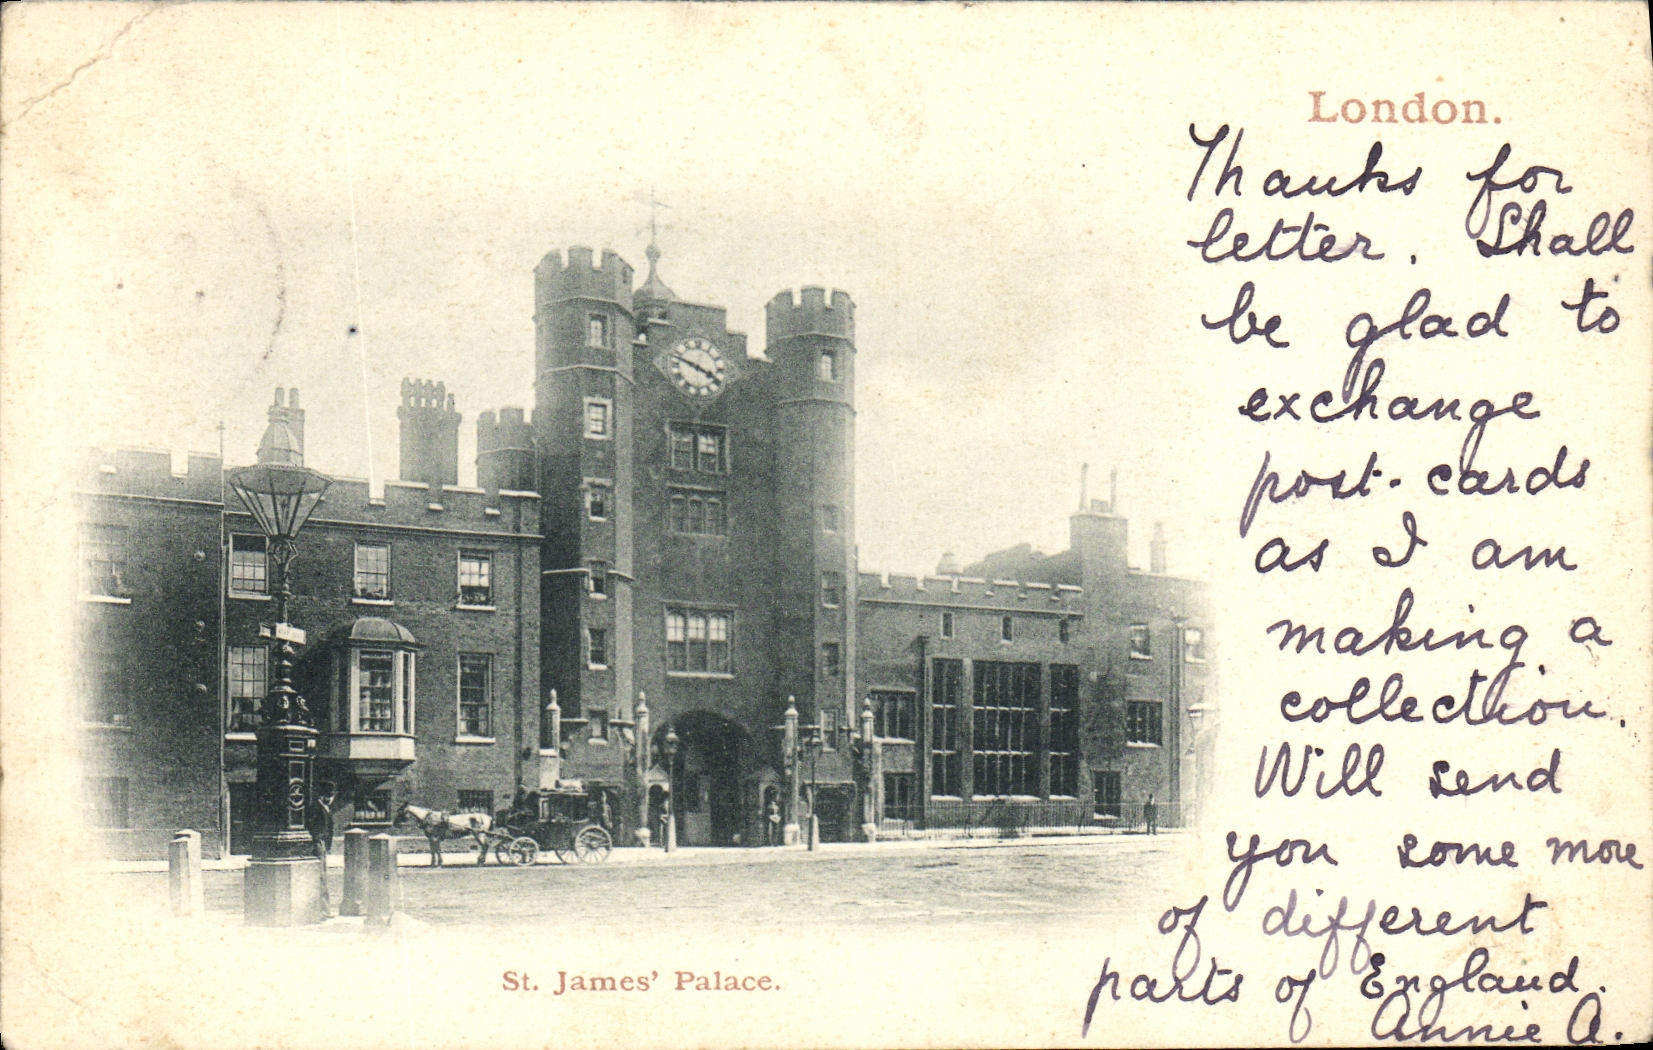 London.
Thanks for
letter. Shall
be glad to
exchange
post-cards
as I am
making a
collection.
Will send
you some more
of different
parts of England.
Annie A.
St. James' Palace.